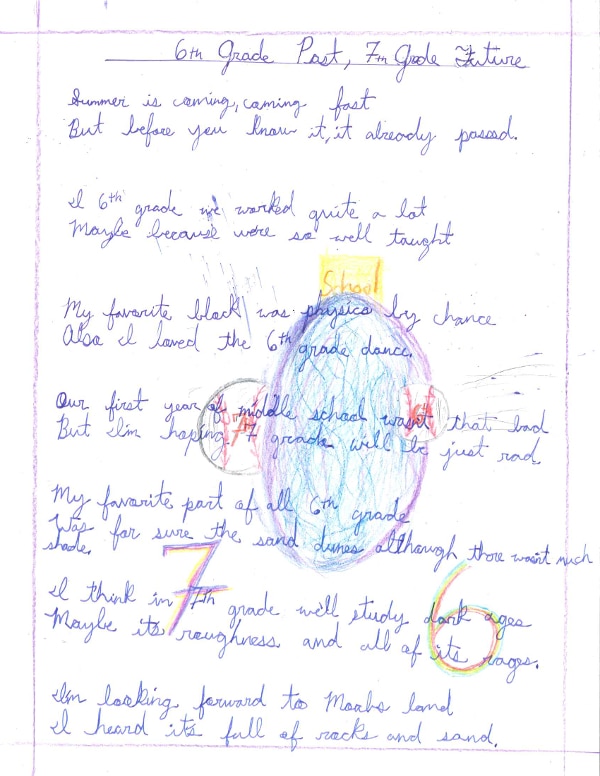 6th Grade Past, 7th Grade Future
Summer is coming, coming fast
But before you know it, it already passed.
I 6th grade we worked quite a lot
Maybe because were so well taught
School
My favorite block was physics by chance
Also I loved the 6th grade dance.
Our first year of middle school wasnt that bad
But I'm hoping 7 grade will be just rad.
My favorite part of all 6th grade
Was for sure the sand dunes although there wasnt much
shade.
7
6
I think in 7th grade we'll study dark ages
Maybe its roughness and all of its rages.
I'm looking forward to Moabs land
I heard it's full of rocks and sand.